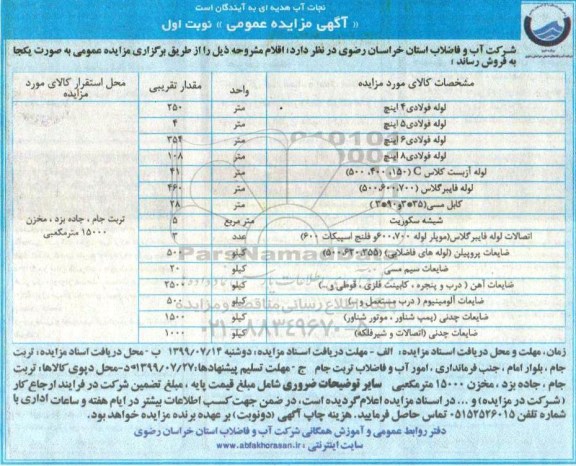 نجات آب هدیه ای به آیندگان است
« آگهی مزایده عمومی » نوبت اول
شرکت آب و فاضلاب استان خراسان رضوی در نظر دارد؛ اقلام مشروحه ذیل را از طریق برگزاری مزایده عمومی به صورت یکجا
به فروش رساند ؛
مشخصات کالای مورد مزایده واحد مقدار تقریبی محل استقرار کالای مورد مزایده
لوله فولادی۴ اینچ متر ۲۵۰
لوله فولادی۵ اینچ متر ۴
لوله فولادی۶ اینچ متر ۳۵۴
لوله فولادی۸ اینچ متر ۱۰۸
لوله آزبست کلاس C (۱۵۰، ۴۰۰، ۵۰۰) متر ۴۱
لوله فایبرگلاس (۵۰۰،۶۰۰،۷۰۰) متر ۴۶۰
کابل مسی(۳*۳۵و۳*۹۰) متر ۲۸
شیشه سکوریت متر مربع ۵
اتصالات لوله فایبرگلاس(موپلر لوله ۶۰۰،۷۰۰و فلنج اسپیکات ۶۰۰) عدد ۳
ضایعات پروپیلن (لوله های فاضلابی) (۵۰۰،۶۳۰،۳۵۵) کیلو ۵۰۰
ضایعات سیم مسی کیلو ۲۰
ضایعات آهن ( درب و پنجره ، کابینت فلزی، قوطی و..) کیلو ۲۵۰۰
ضایعات آلومینیوم ( درب مستعمل و ..) کیلو ۵۰۰
ضایعات چدنی (پمپ شناور ، موتور شناور) کیلو ۱۵۰۰
ضایعات چدنی (اتصالات و شیرفلکه) کیلو ۱۰۰۰
تربت جام ، جاده یزد ، مخزن
۱۵۰۰۰ مترمکعبی
ParsNamadData
پایگاه اطلاع رسانی مناقصه و مزایده
۰۲۱-۸۸۳۴۹۶۷۰
زمان، مهلت و محل دریافت اسناد مزایده: الف - مهلت دریافت اسناد مزایده: دوشنبه ۱۳۹۹/۰۷/۱۴ ب- محل دریافت اسناد مزایده: تربت
جام ، بلوار امام ، جنب فرمانداری ، امور آب و فاضلاب تربت جام ج - مهلت تسلیم پیشنهادها: ۱۳۹۹/۰۷/۲۷ د-محل دپوی کالاها: تربت
جام ، جاده یزد ، مخزن ۱۵۰۰۰ مترمکعبی سایر توضیحات ضروری شامل مبلغ قیمت پایه ، مبلغ تضمین شرکت در فرایند ارجاع کار
(شرکت در مزایده) و ... در اسناد مزایده اعلام گردیده است، در ضمن جهت کسب اطلاعات بیشتر در ایام هفته و ساعات اداری با
شماره تلفن ۰۵۱۵۲۵۲۶۰۱۵ تماس حاصل فرمایید. هزینه چاپ آگهی (دونوبت) بر عهده برنده مزایده خواهد بود.
دفتر روابط عمومی و آموزش همگانی شرکت آب و فاضلاب استان خراسان رضوی
سایت اینترنتی : www.abfakhorasan.ir